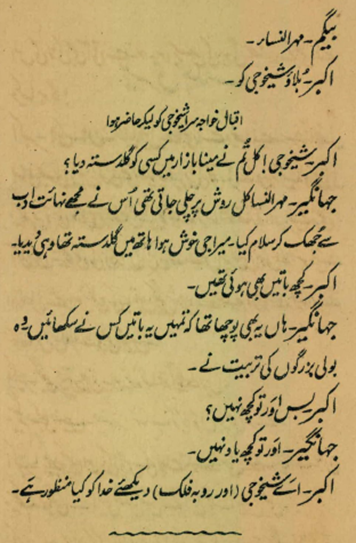 بیگم۔ مہرالنساء۔
اکبر۔ بُلاؤ شیخوجی کو۔
اقبال خواجہ سرا شیخوجی کو لیکر حاضر ہوا
اکبر۔ شیخوجی! کل تُم نے مینا بازار میں کسی کو گلدستہ دیا؟
جہانگیر۔ مہرالنسا کل روش پر چلی جاتی تھی اُس نے مجھے نہائت ادب
سے جُھک کر سلام کیا۔ میرا جی خوش ہوا ہاتھ میں گلدستہ تھا وہی دیدیا۔
اکبر۔ کچھ باتیں بھی ہوئی تھیں۔
جہانگیر۔ ہاں یہ بھی پوچھا تھا کہ تمہیں یہ باتیں کس نے سکھائیں وہ
بولی بزرگوں کی تربیت نے۔
اکبر۔ بس اَور تو کچھ نہیں؟
جہانگیر۔ اَور تو کچھ یاد نہیں۔
اکبر۔ اَے شیخوجی (اور رو بہ فلک) دیکھئے خدا کو کیا منظور ہے۔